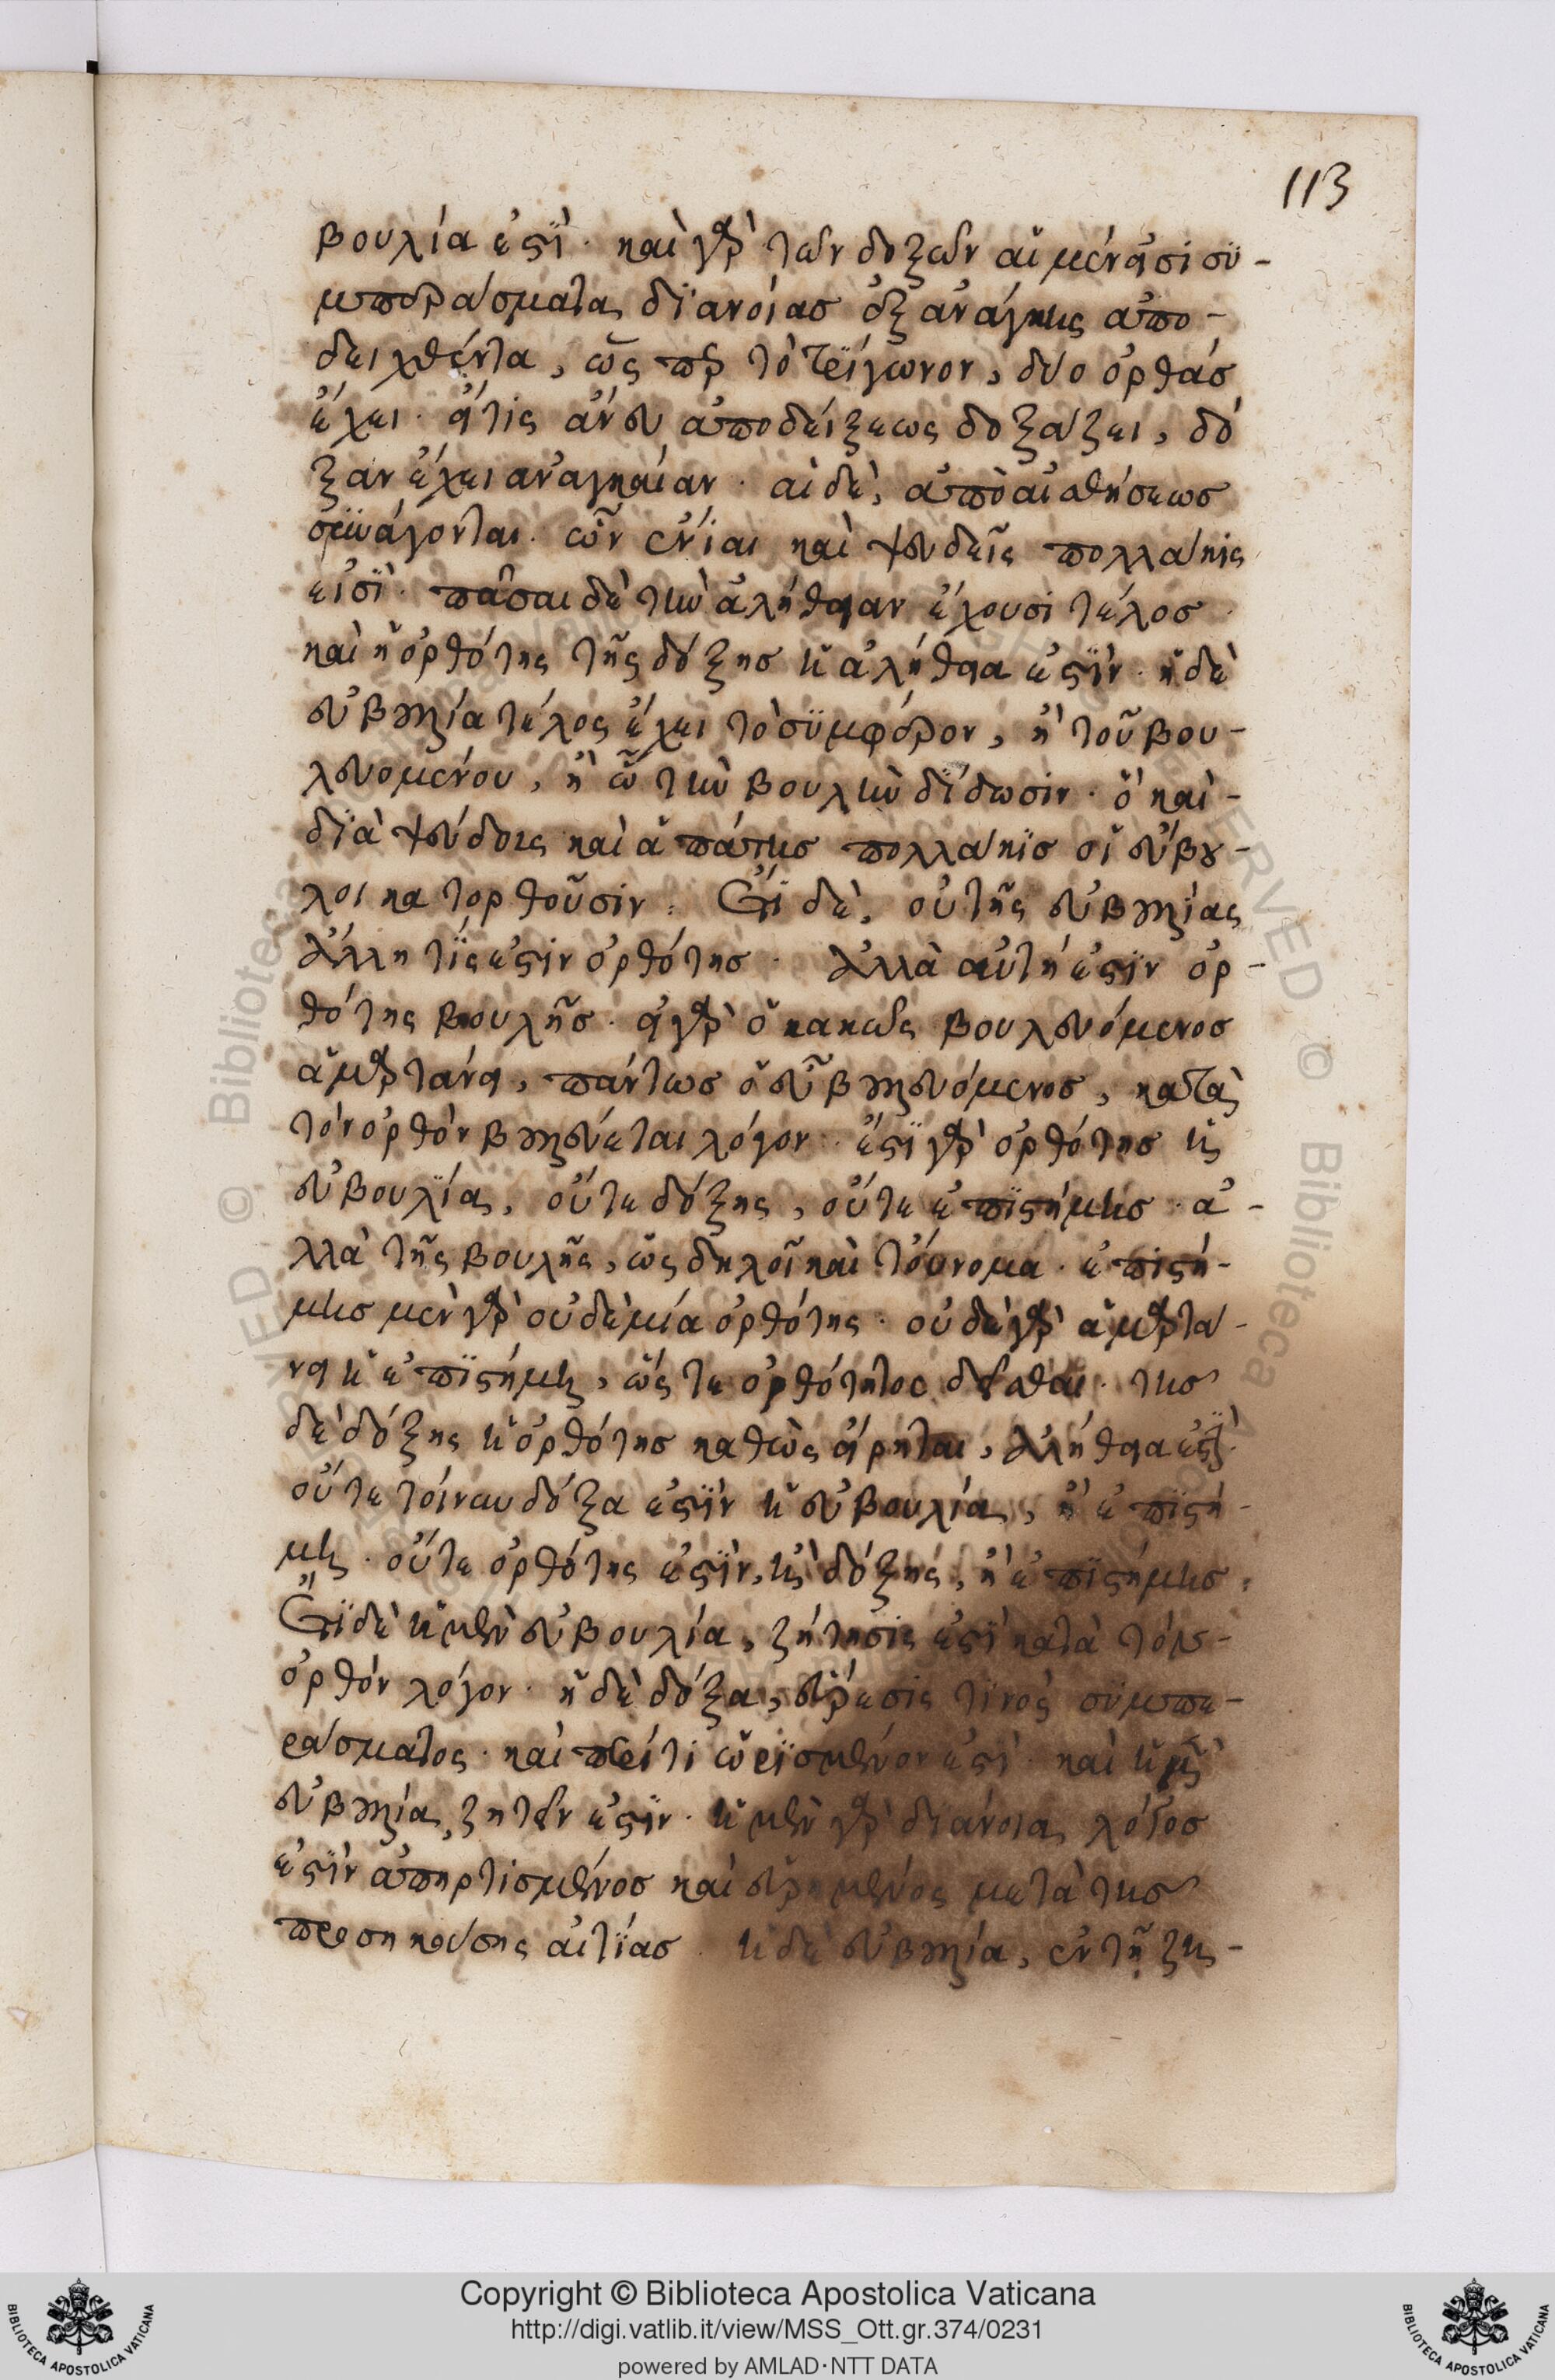 113
βουλία ἐστί· καὶ γὰρ τῶν δοξῶν αἱ μέν εἰσι συ-
μπεράσματα διανοίας ἐξ ἀνάγκης ἀπο-
δειχθέντα, ὥσπερ τὸ τρίγωνον, δύο ὀρθάς
ἔχει· εἴ τις ἄνευ ἀποδείξεως δοξάζει, δό
ξαν ἔχει ἀναγκαίαν· αἱ δὲ, ἀπὸ αἰσθήσεως
συνάγονται· ὧν ἔνιαι καὶ ψευδεῖς πολλάκις
εἰσὶ· πᾶσαι δὲ τὴν ἀλήθειαν ἔχουσι τέλος
καὶ ἡ ὀρθότης τῆς δόξης ἡ ἀλήθεια ἐστίν· ἡ δὲ
εὐβουλία τέλος ἔχει τὸ συμφέρον, ἢ τοῦ βου-
λευομένου, ἢ ᾧ τὴν βουλὴν δίδωσιν· ὃ καὶ-
διὰ ψεύδους καὶ ἀπάτης πολλάκις οἱ εὔβου-
λοι κατορθοῦσιν: Ἔτι δὲ, οὐ τῆς εὐβουλίας
ἄλλη τίς ἐστιν ὀρθότης· ἀλλὰ αὐτή ἐστιν ὀρ-
θότης βουλῆς· εἰ γὰρ ὁ κακῶς βουλευόμενος
ἁμαρτάνει, πάντως ὁ εὖ βουλευόμενος, κατὰ
τὸν ὀρθὸν βουλεύεται λόγον· ἔστι γὰρ ὀρθότης ἡ
εὐβουλία, οὔτε δόξης, οὔτε ἐπιστήμης· ἀ-
λλὰ τῆς βουλῆς, ὡς δηλοῖ καὶ τόυνομα· ἐπιστή-
μης μὲν γὰρ οὐδὲμία ὀρθότης· οὐδὲ γὰρ ἁμαρτά-
νει ἡ ἐπιστήμη, ὥστε ὀρθότητος δεῖσθαι· τῆς
δὲ δόξης ἡ ὀρθότης καθὼς εἴρηται, ἀλήθεια ἐστὶ·
οὔτε τοίνυν δόξα ἐστὶν ἡ εὐβουλία, ἢ ἐπιστή-
μη· οὔτε ὀρθότης ἐστὶν, ἢ δόξης, ἢ ἐπιστήμης:
Ἔτι δὲ ἡ μὲν εὐβουλία, ζήτησις ἐστὶ κατὰ τὸν-
ὀρθόν λόγον· ἡ δὲ δόξα, εὕρεσις τινὸς συμπε-
ράσματος· καὶ περί τι ὡρισμένον ἐστὶ· καὶ ἡ μὲν
εὐβουλία ζητεῖν ἐστίν· ἡ μὲν γὰρ διάνοια λόγος
ἐστὶν ἀπηρτισμένος καὶ εὑρημένος μετὰ τῆς
προσηκούσης αἰτίας· ἡ δὲ εὐβουλία, ἐν τῇ ζη-
Copyright © Biblioteca Apostolica Vaticana
http://digi.vatlib.it/view/MSS_Ott.gr.374/0231
powered by AMLAD·NTT DATA